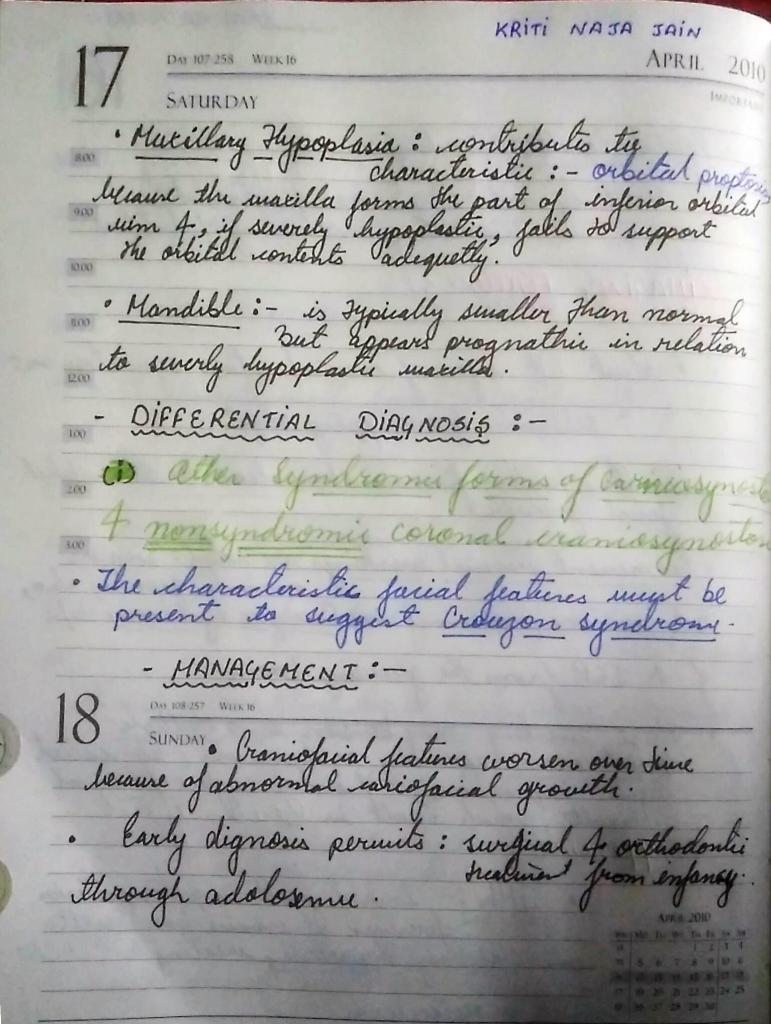 KRITI NAJA JAIN
17 DAY 107-258 WEEK 16 APRIL 2010
SATURDAY
• Maxillary Hypoplasia : contributes the
8.00 characteristic :- orbital proptosis
because the maxilla forms the part of inferior orbital
9.00
rim &, if severely hypoplastic, fails to support
the orbital contents adequetly.
10.00
• Mandible :- is typically smaller than normal
11.00
but appears prognathic in relation
to severly hypoplastic maxilla.
12.00
- DIFFERENTIAL DIAGNOSIS :-
1.00
(i) Other Syndromic forms of
2.00
& nonsyndromic coronal craniosynostosis
3.00
• The characteristic facial features must be
present to suggest Crouzon syndrome.
- MANAGEMENT :-
18 DAY 108-257 WEEK 16
SUNDAY • Craniofacial features worsen over time
because of abnormal craniofacial growth.
• Early dignosis permits : surgical & orthodontic
treatment from infancy
through
APRIL 2010